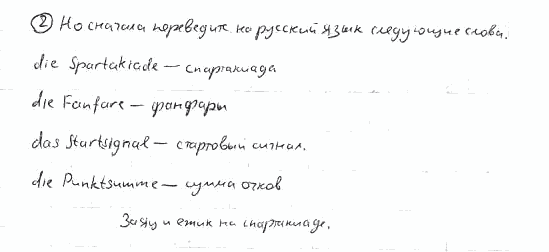 ② Но сначала переведите на русский язык следующие слова.
die Spartakiade – спартакиада
die Fanfare – фанфары
das Startsignal – стартовый сигнал.
die Punktsumme – сумма очков
и ежик на спартакиаде.